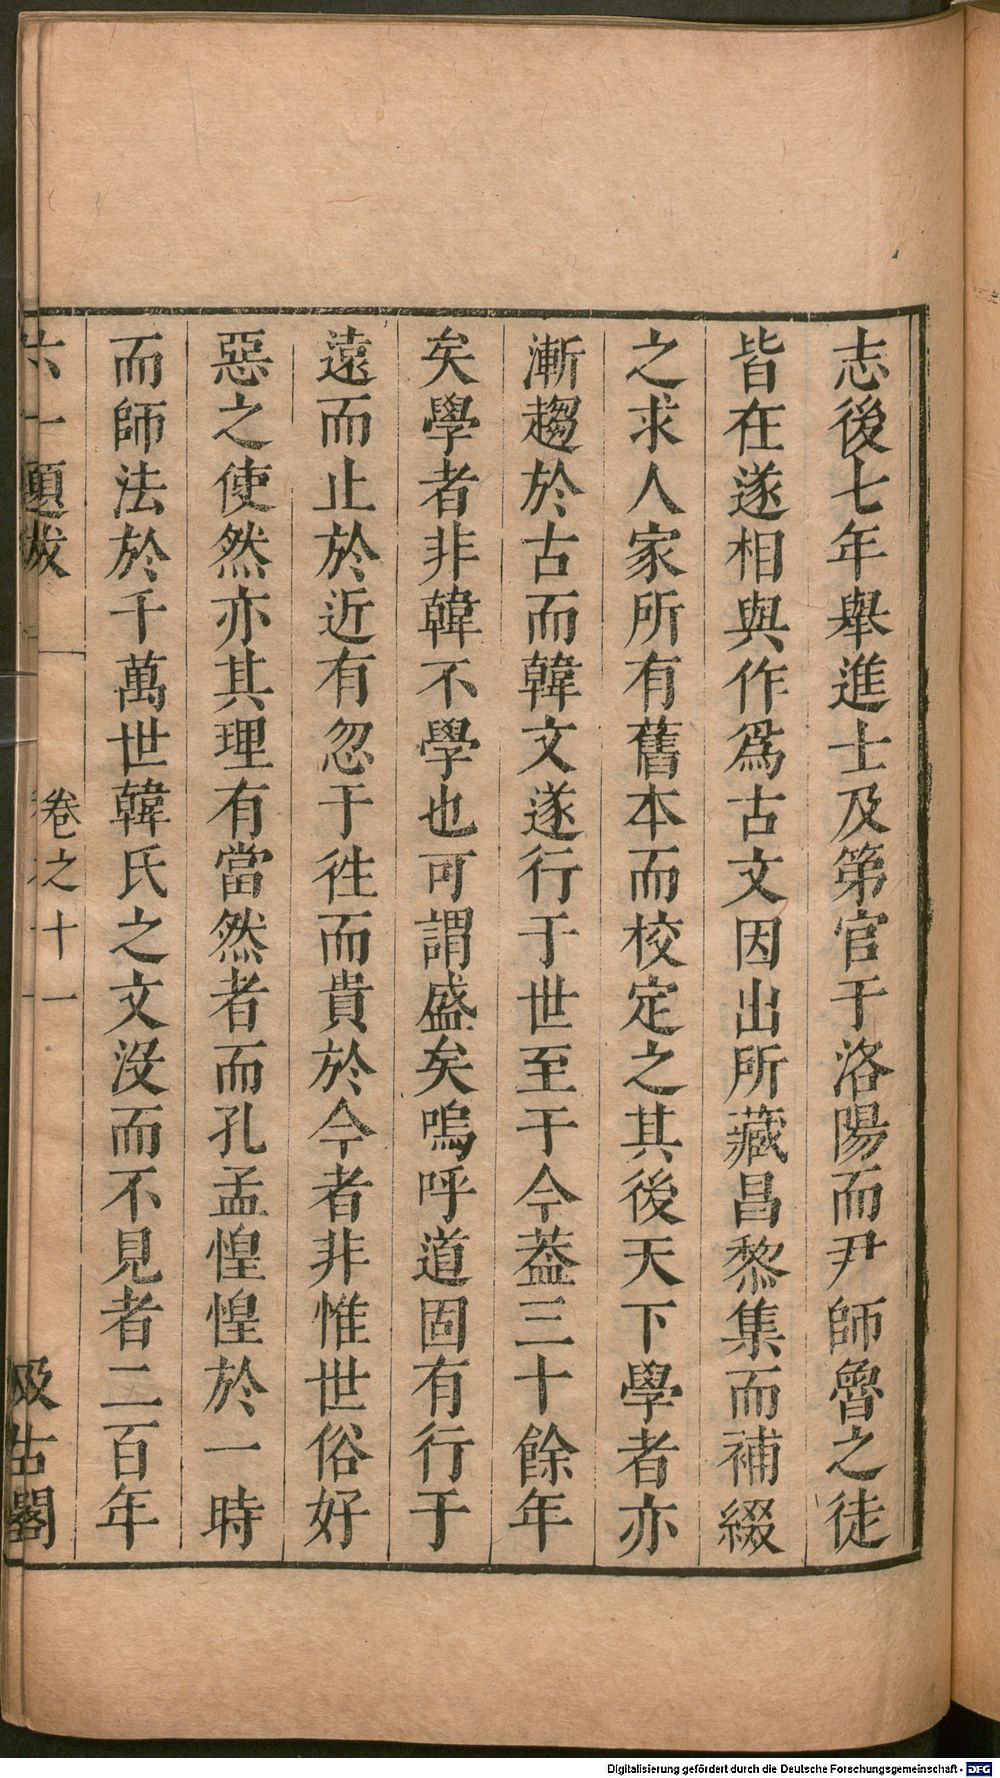 志後七年舉進士及第官于洛陽而尹師魯之徒
皆在遂相與作爲古文因出所藏昌黎集而補綴
之求人家所有舊本而校定之其後天下學者亦
漸趨於古而韓文遂行于世至于今葢三十餘年
矣學者非韓不學也可謂盛矣嗚呼道固有行于
遠而止於近有忽于徃而貴於今者非惟世俗好
惡之使然亦其理有當然者而孔孟惶惶於一時
而師法於千萬世韓氏之文没而不見者二百年
六一題跋 卷之十一 汲古閣
Digitalisierung gefördert durch die Deutsche Forschungsgemeinschaft - DFG